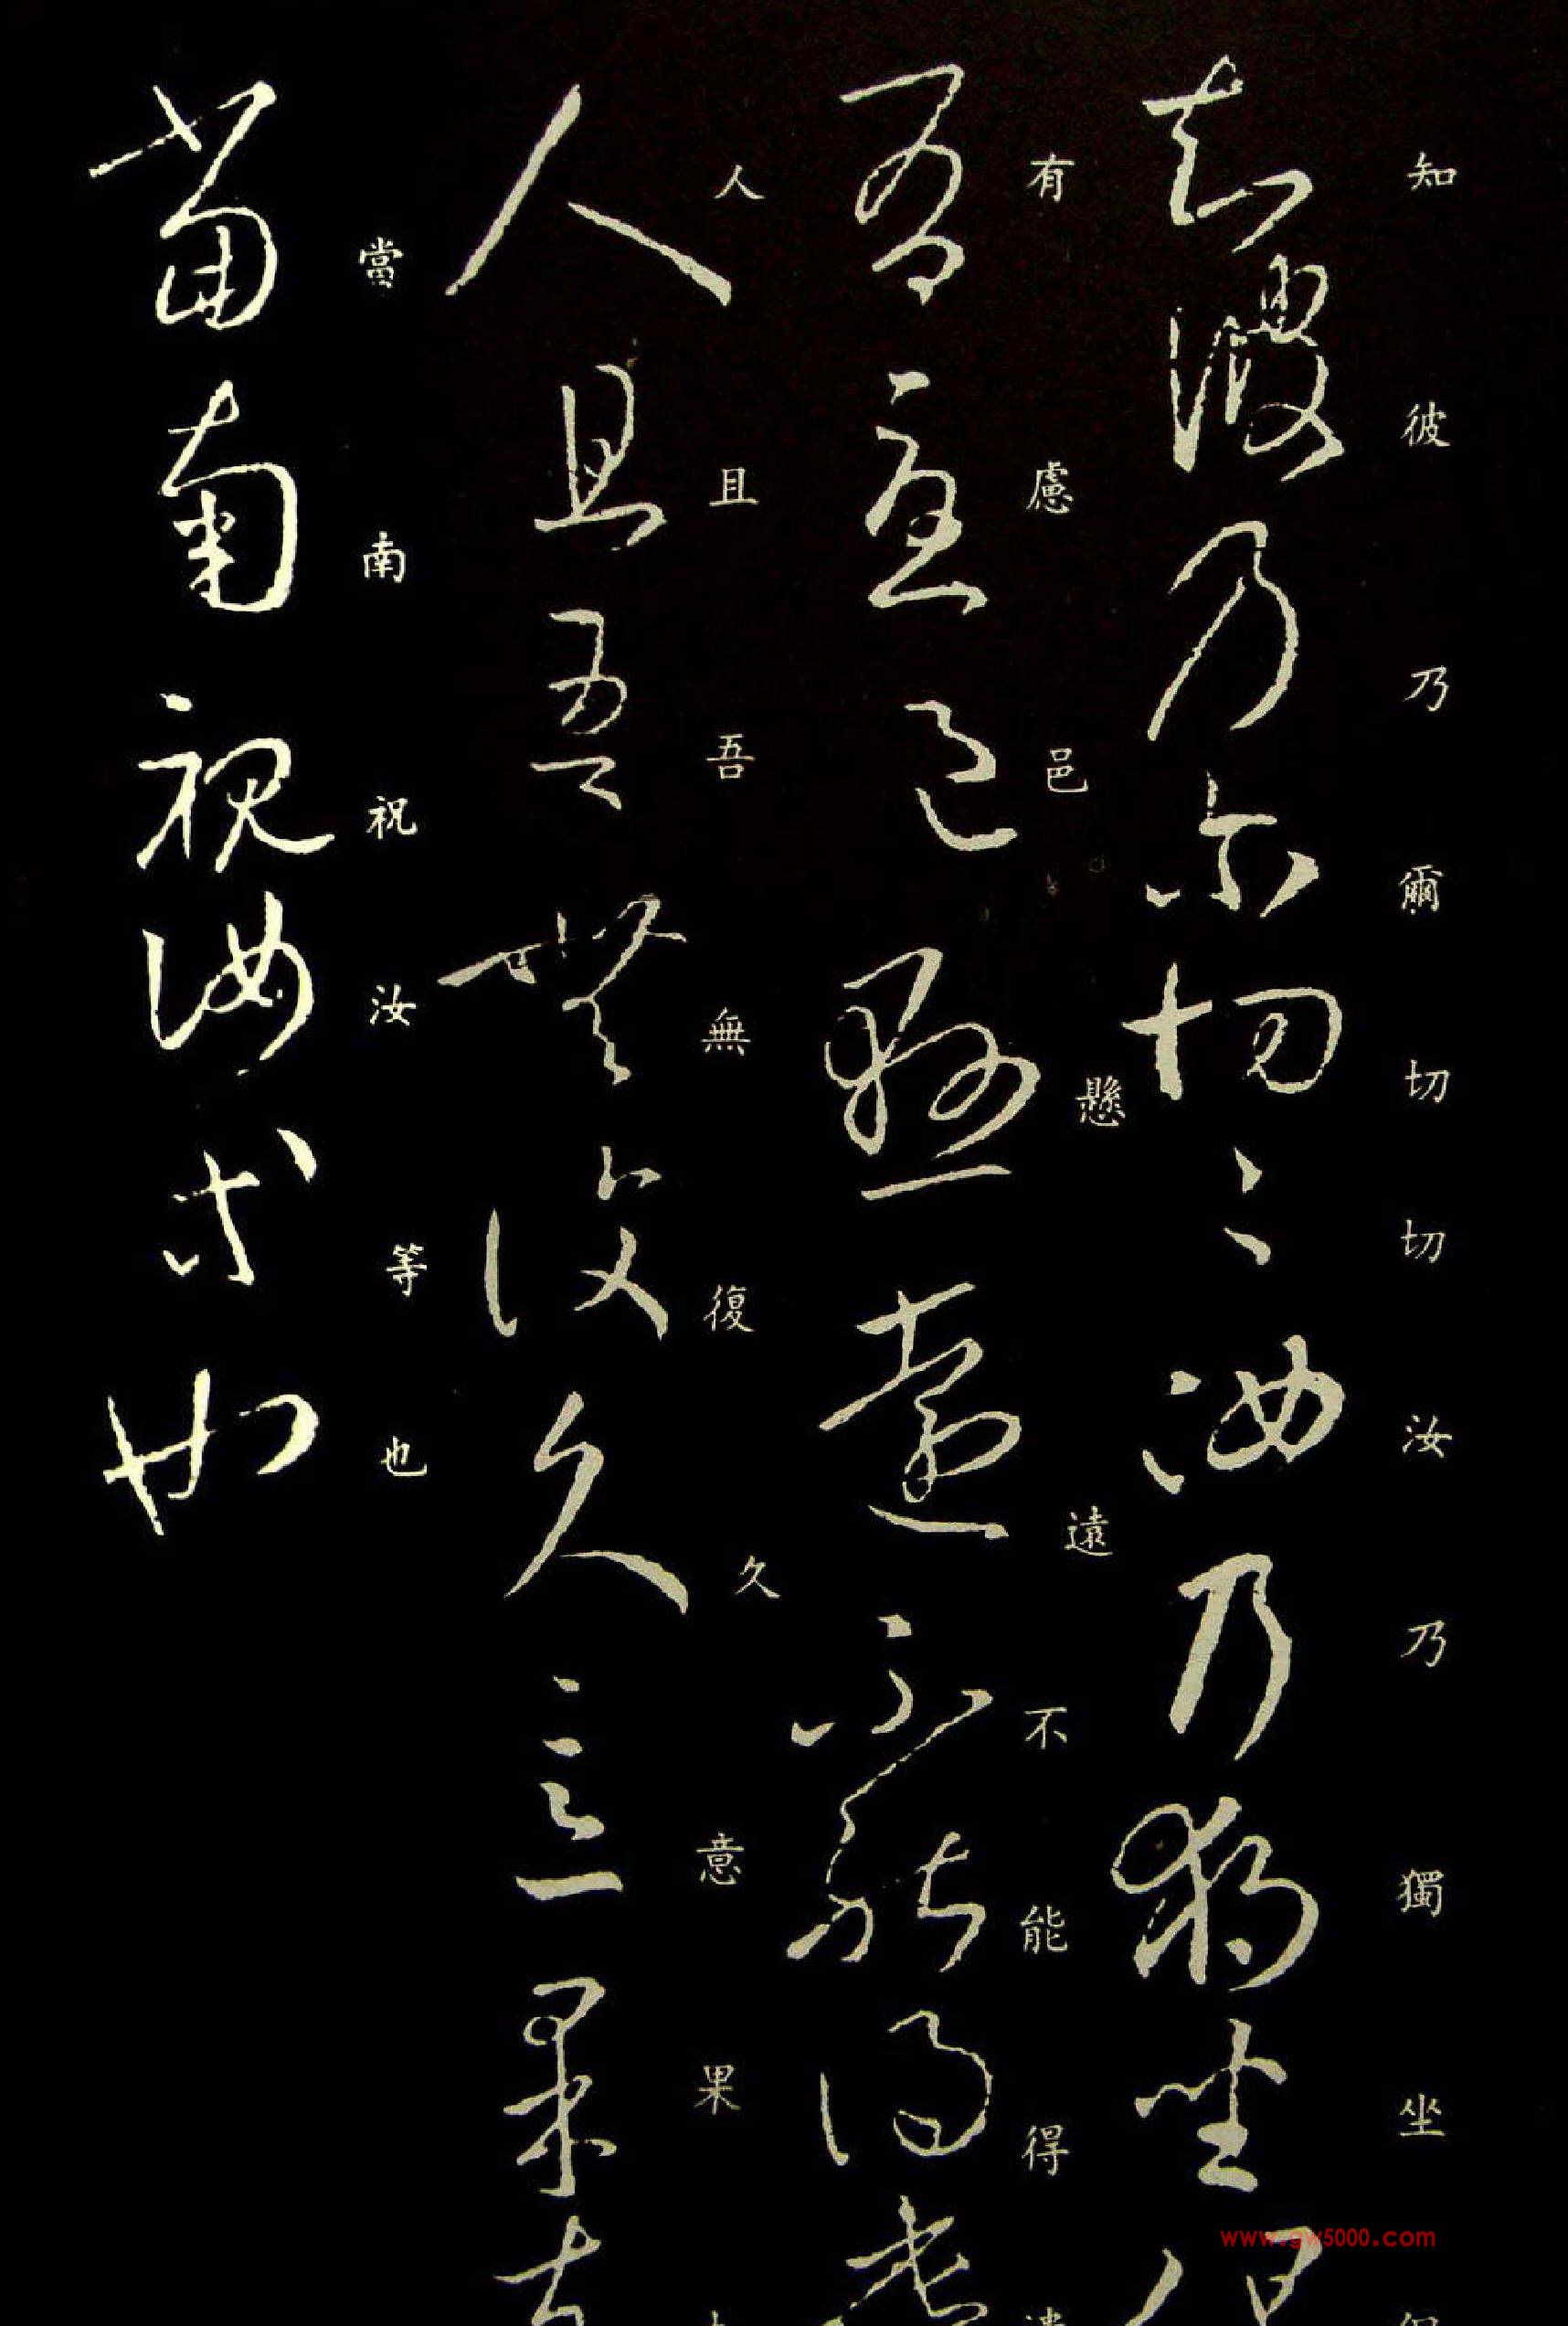 知彼乃爾切切汝乃獨坐
有慮邑懸遠不能得
人且吾無復久意果
當南祝汝等也
www.gw5000.com